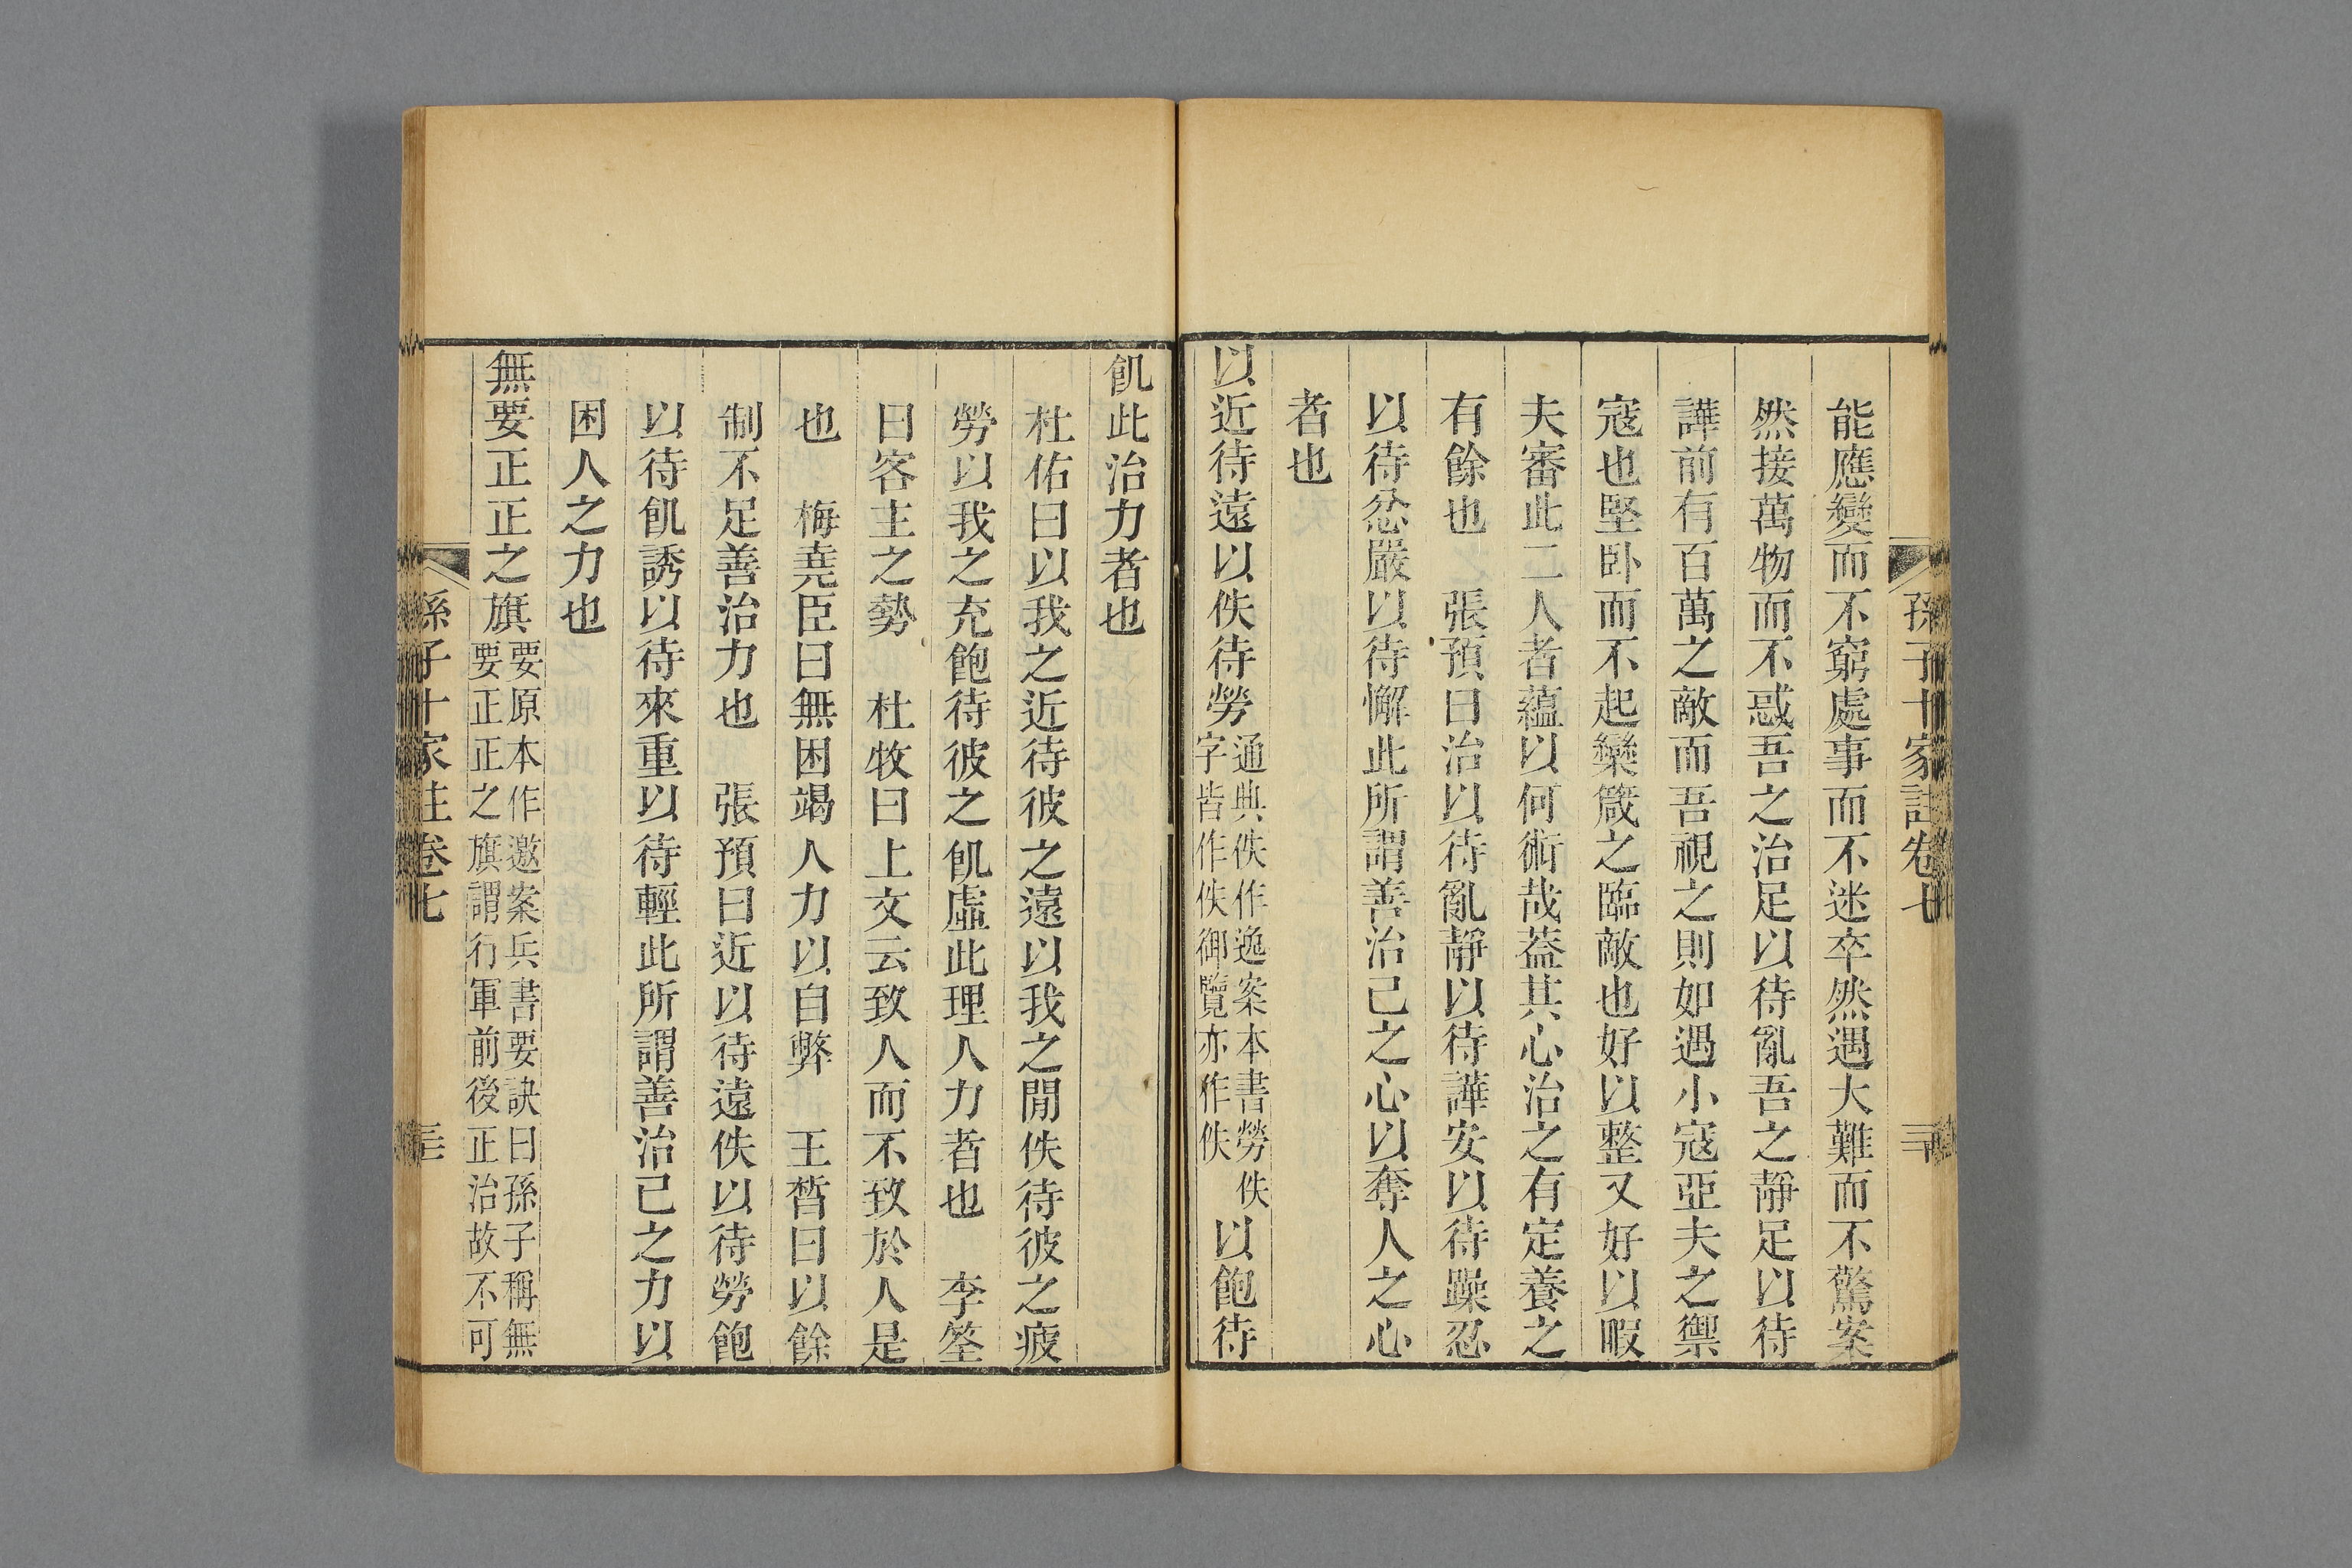 孫子十家註卷七
三十
能應變而不窮處事而不迷卒然遇大難而不驚案
然接萬物而不惑吾之治足以待亂吾之靜足以待
譁前有百萬之敵而吾視之則如遇小寇亞夫之禦
寇也堅臥而不起欒箴之臨敵也好以整又好以暇
夫審此二人者蘊以何術哉葢其心治之有定養之
有餘也　張預曰治以待亂靜以待譁安以待躁忍
以待忿嚴以待懈此所謂善治己之心以奪人之心
者也
以近待遠以佚待勞通典佚作逸案本書勞佚字皆作佚御覽亦作佚以飽待
飢此治力者也
杜佑曰以我之近待彼之遠以我之閒佚待彼之疲
勞以我之充飽待彼之飢虛此理人力者也　李筌
曰客主之勢　杜牧曰上文云致人而不致於人是
也　梅堯臣曰無困竭人力以自弊　王晳曰以餘
制不足善治力也　張預曰近以待遠佚以待勞飽
以待飢誘以待來重以待輕此所謂善治己之力以
困人之力也
無要正正之旗要原本作邀案兵書要訣曰孫子稱無要正正之旗謂行軍前後正治故不可
孫子十家註卷七